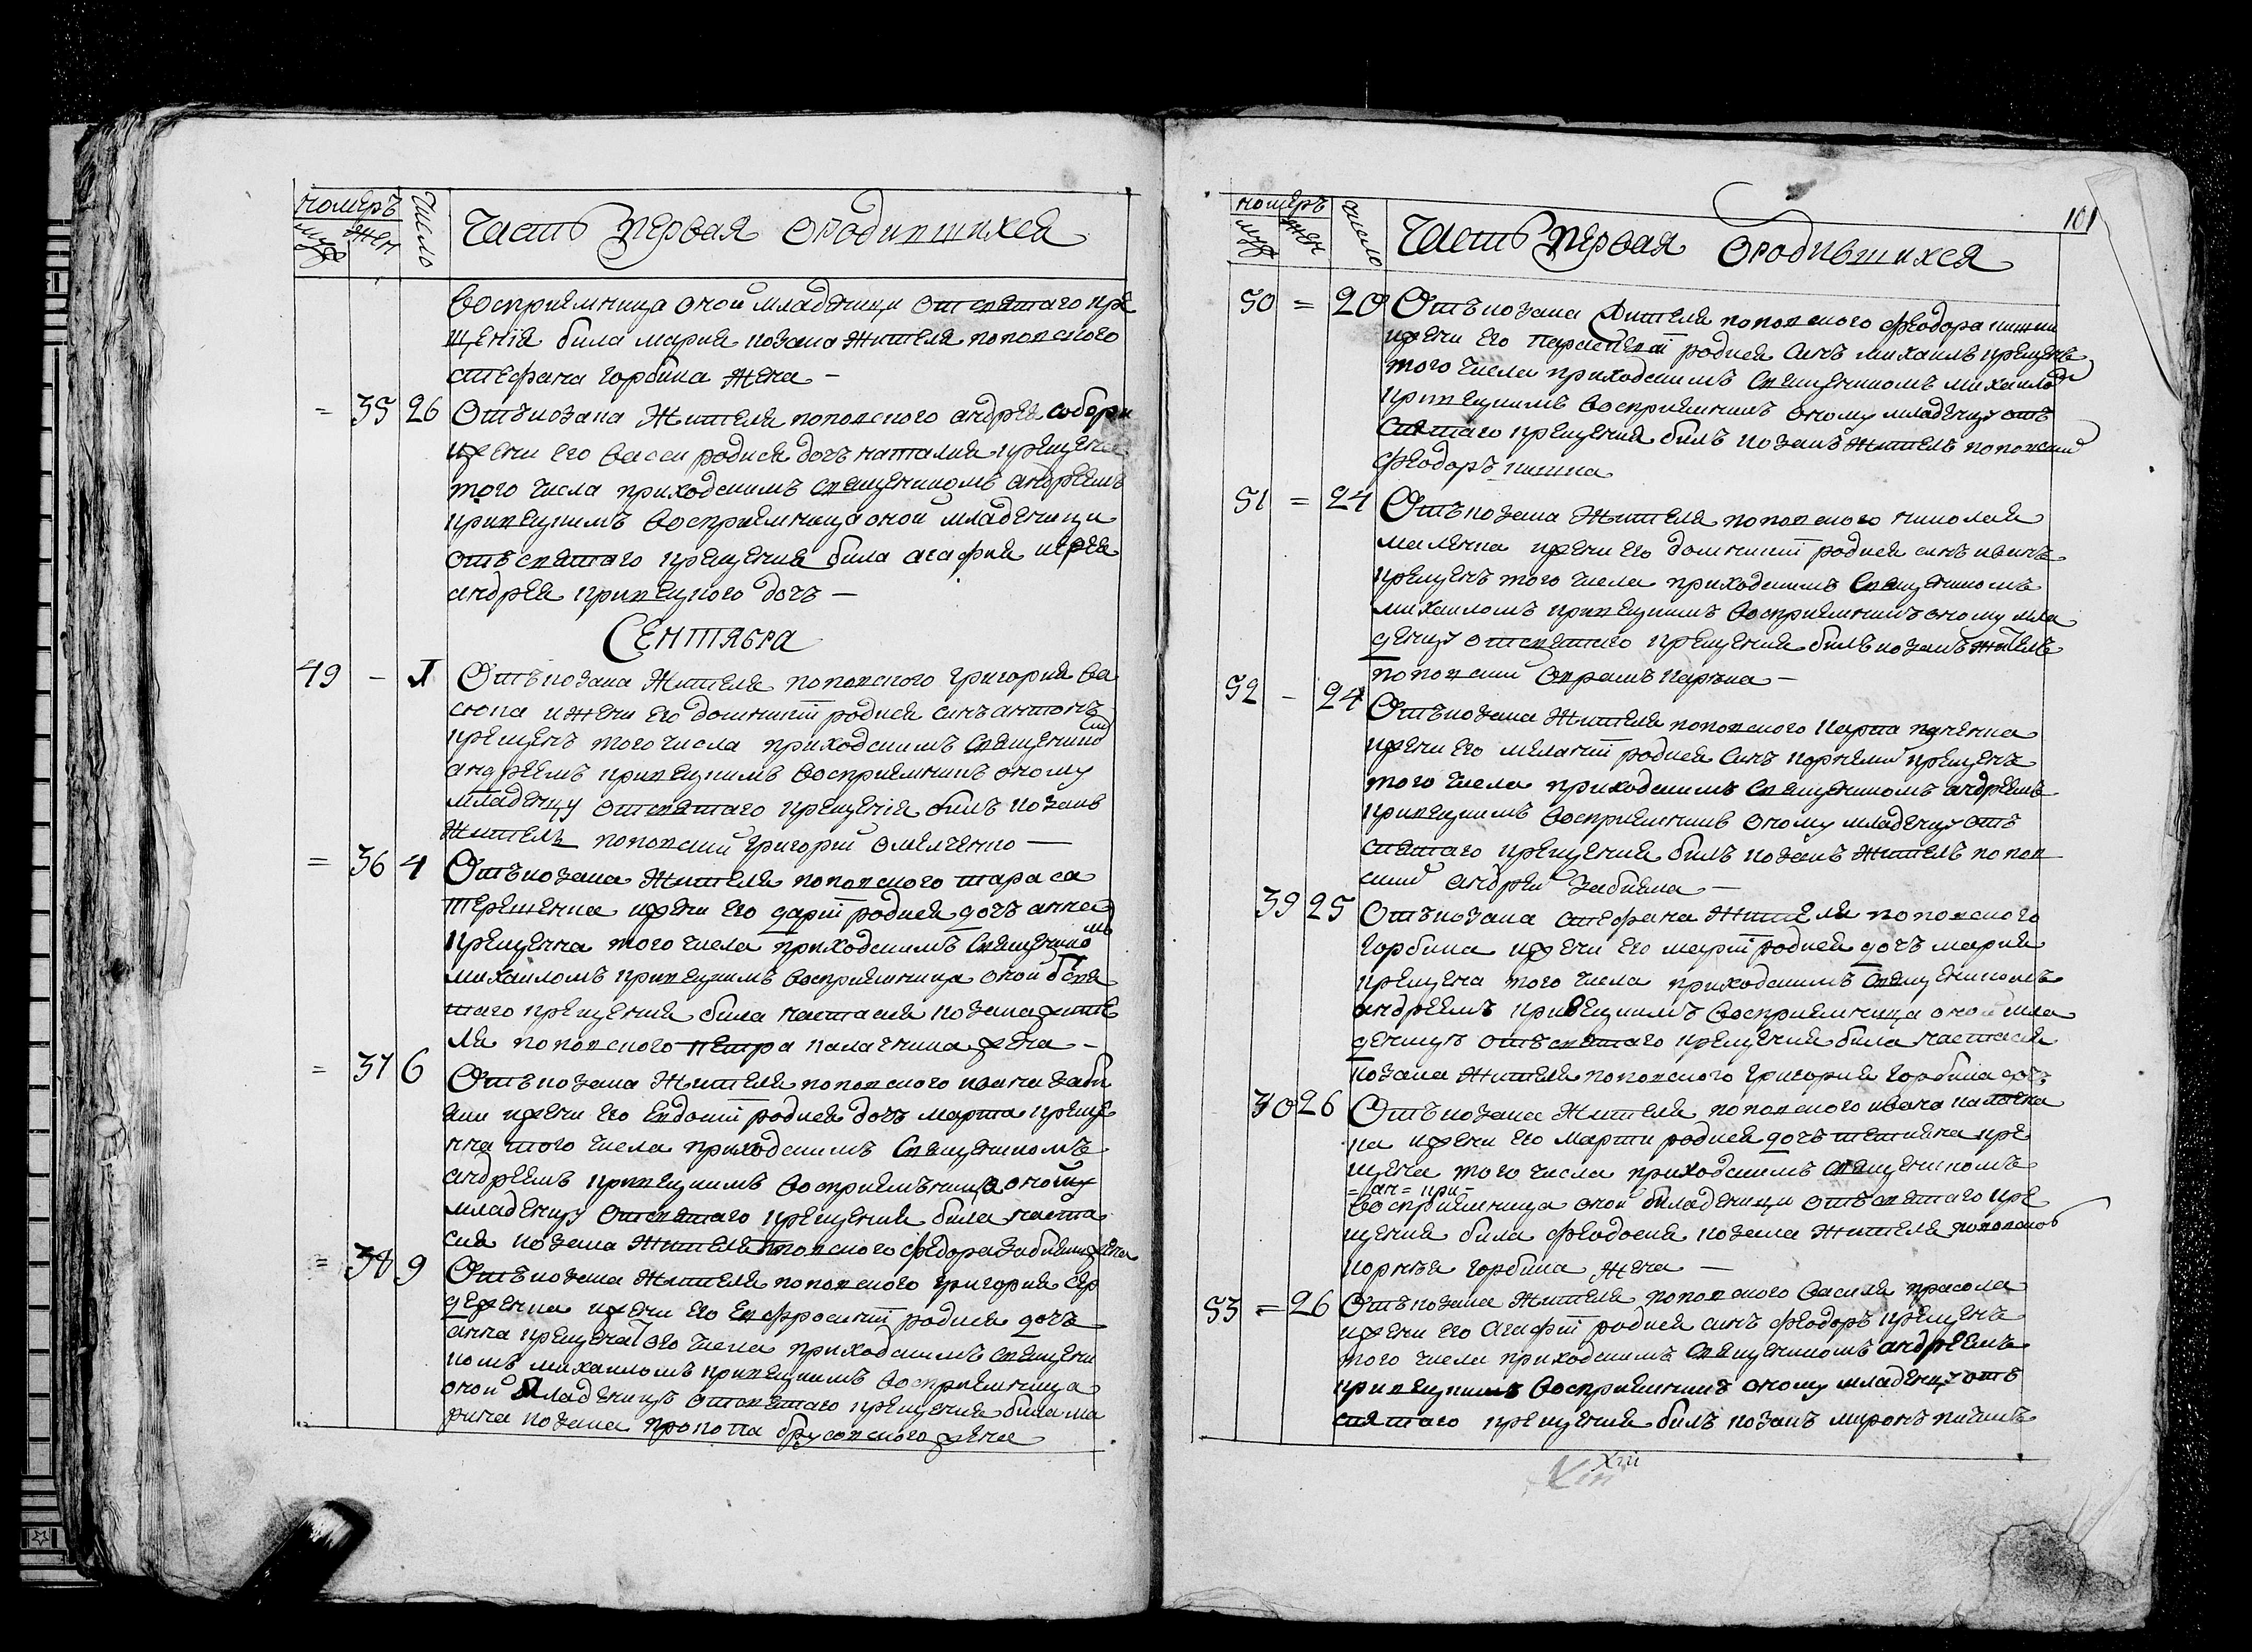 номеръ
муж
жен
число
Часть первая ородившихся
восприемница оной младеници отсвятаго кре
щенія била мария козака жителя поповского
стефана горбика жена —
= 35 26 Отъкозака жителя поповского андрея
ижени его васси родися дочъ наталия крещенна
того числа приходскимъ священикомъ андреемъ
кривецкимъ восприемница оной младеници
отъсвятаго крещения била агафия иерея
андрея кривецкого дочъ —
Сентября
49 — 1 Отъкозака жителя поповского григория ва
сюка ижени его домникіи родися синъ антонъ
крещенъ того числа приходскимъ священико
андреемъ кривецкимъ восприемникъ оному
младенцу отсвятаго крещенія билъ козакъ
житель поповскии григорий омелченко —
= 36 4 Отъкозака жителя поповского тараса
терещенка ижени его даріи родися дочъ анна
крещенна того числа приходскимъ священико
михаиломъ кривецкимъ восприемница оной
таго крещения била настасия козака жите
ля поповского петра жена —
= 37 6 Отъкозака жителя поповского ивана заби
яки ижени его евдокіи родися дочъ марта креще
нна того числа приходскимъ священикомъ
андреемъ кривецкимъ восприемъница оному
младенцу отсвятаго крещения била наста
сия козака жителя поповского федора забияки жена
= 38 9 Отъкозака жителя поповского григория сер
деженка ижени его евфросиніи родися дочъ
анна крещена того числа приходскимъ священи
комъ михаиломъ кривецкимъ восприемница
оной младеницъ отсвятаго крещения била ма
рина козака прокопа брусовского жена
101
номеръ
муж
жен
число
Часть первая ородившихся
50 = 20 Отъкозака жителя поповского феодора кишки
ижени его параскевіи родися синъ михаилъ крещенъ
того числа приходскимъ священикомъ михаило
кривецкимъ восприемникъ оному младенцу отъ
святаго крещения билъ козакъ житель поповский
феодоръ кишка
51 = 24 Отъкозака жителя поповского николая
маленка ижени его домникіи родися синъ иванъ
крещенъ того числа приходскимъ священикомъ
михаиломъ кривецкимъ восприемникъ оному мла
денцу отсвятаго крещения билъ козакъ жителъ
поповскии
52 — 24 Отъкозака жителя поповского карпа
ижени его меланіи родися синъ корнелий крещенъ
того числа приходскимъ священикомъ андреемъ
кривецкимъ восприемникъ оному младенцу отъ
святаго крещения билъ козакъ житель попов
ский андрей забияка —
39 25 Отъкозака стефана жителя поповского
горбика ижени его маріи родися дочъ мария
крещена того числа приходскимъ священикомъ
андреемъ кривецкимъ восприемница оной мла
деницъ отъсвятаго крещения била настасия
козака жителя поповского григория горбика дочъ
40 26 Отъкозака жителя поповского ивана
ка ижени его марти родися дочъ тетияна кре
щена того числа приходскимъ священикомъ
= ан = кри =
восприемница оной младеници отъсвятаго кре
щения била феодосия козака жителя поповского
корнея горбика жена —
53 = 26 Отъкозака жителя поповского василя прасола
ижени его агафіи родися синъ феодоръ крещенъ
того числа приходскимъ священикомъ андреемъ
кривецкимъ восприемникъ оному младенцу отъ
святаго крещения билъ козакъ миронъ